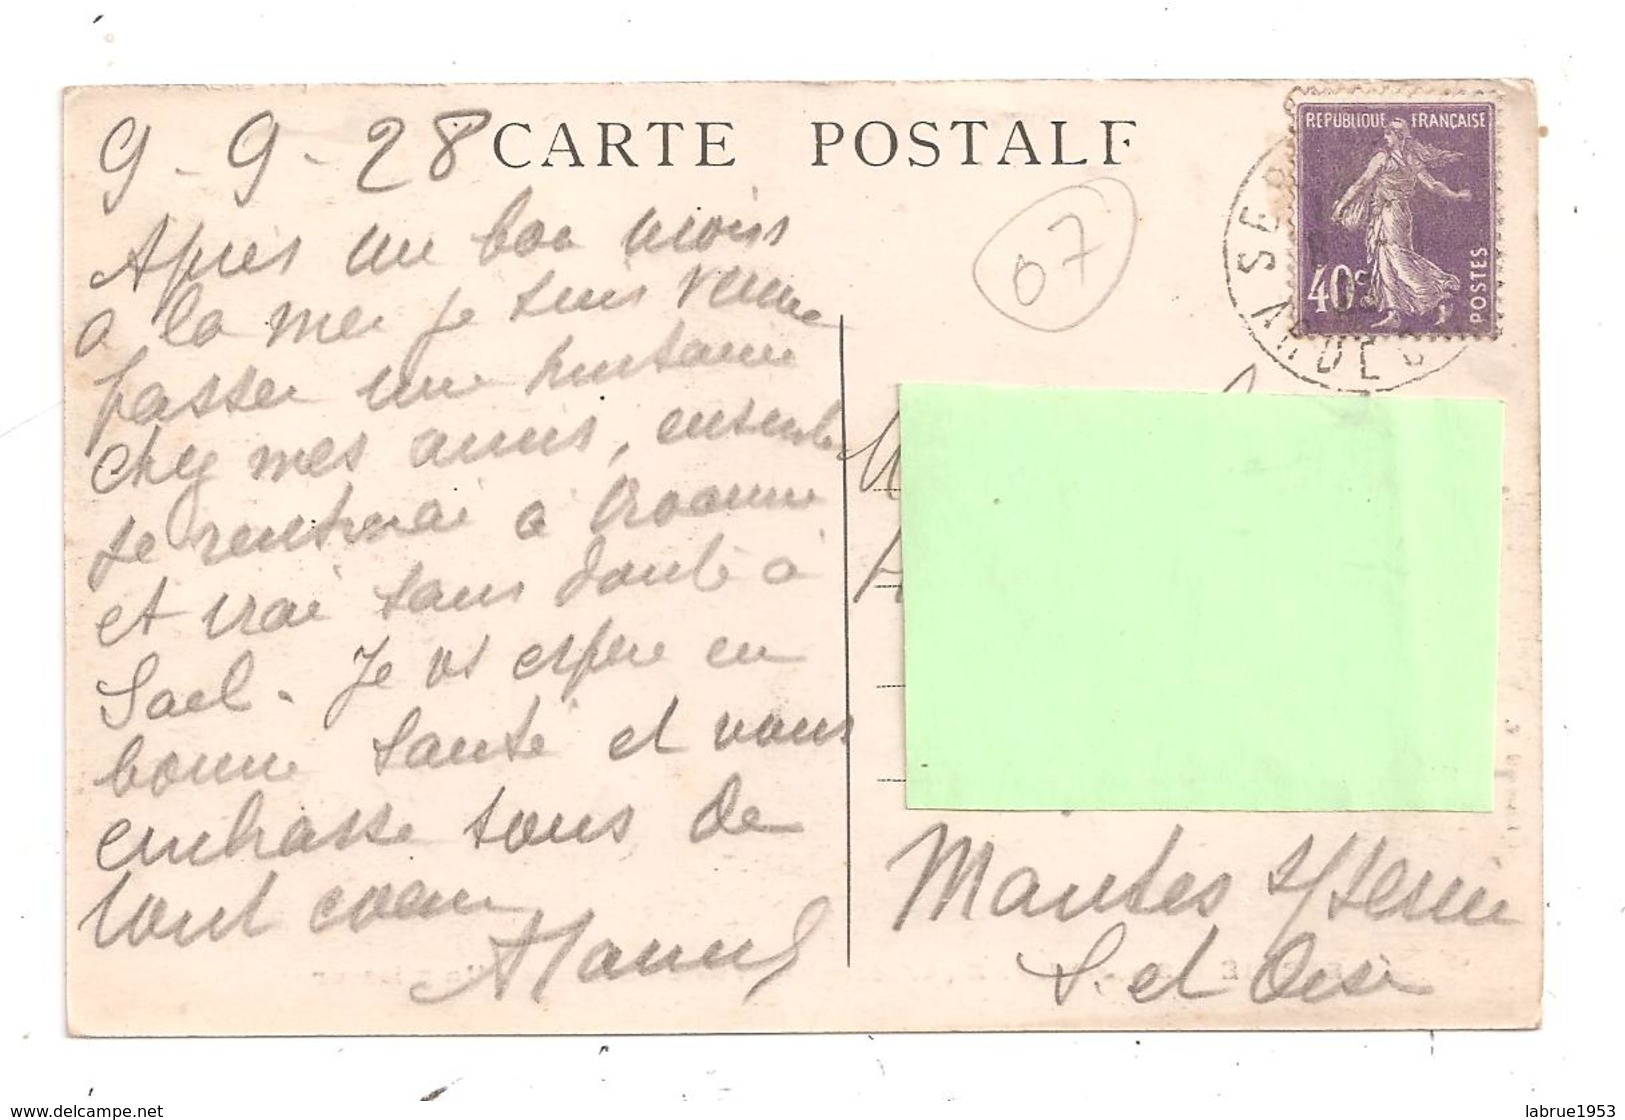 9-9-28
CARTE POSTALE
Après un bon mois
a la mer je suis venue
passer une huitaine
chez mes amis, ensuite
je rentrerai à
et irai sans doute à
Sael. Je vs espère en
bonne santé et vous
embrasse tous de
tout coeur
07
REPUBLIQUE FRANÇAISE
40c
POSTES
SER
ARDEC
M
A
Mantes s/ Seine
S. et Oise
www.delcampe.net
labrue1953